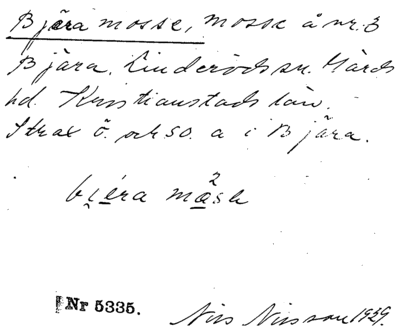 Bjära mosse, mosse å nr. 3
Bjära. Linderöds sn. Gärds
hd. Kristianstads län.
Strax ö. och so. a i Bjära.
bi̯éra måsk
Nr 5335.
Nils Nilsson 1929.